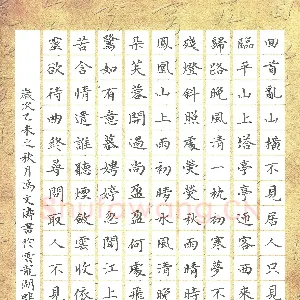 回首亂山橫不見居人只見
臨平山上塔亭亭迎客西來
歸路晚風清一枕初寒夢不
殘燈斜照處熒熒秋雨晴時
鳳凰山上雨初晴水風清
朵芙蕖開過尚盈盈何處飛
鷺如有意慕娉婷忽聞江上
苦含情遣誰聽煙斂雲收依
靈欲待曲終尋問取人不見
歲次乙未之秋月馮文濤書於雲龍湖畔